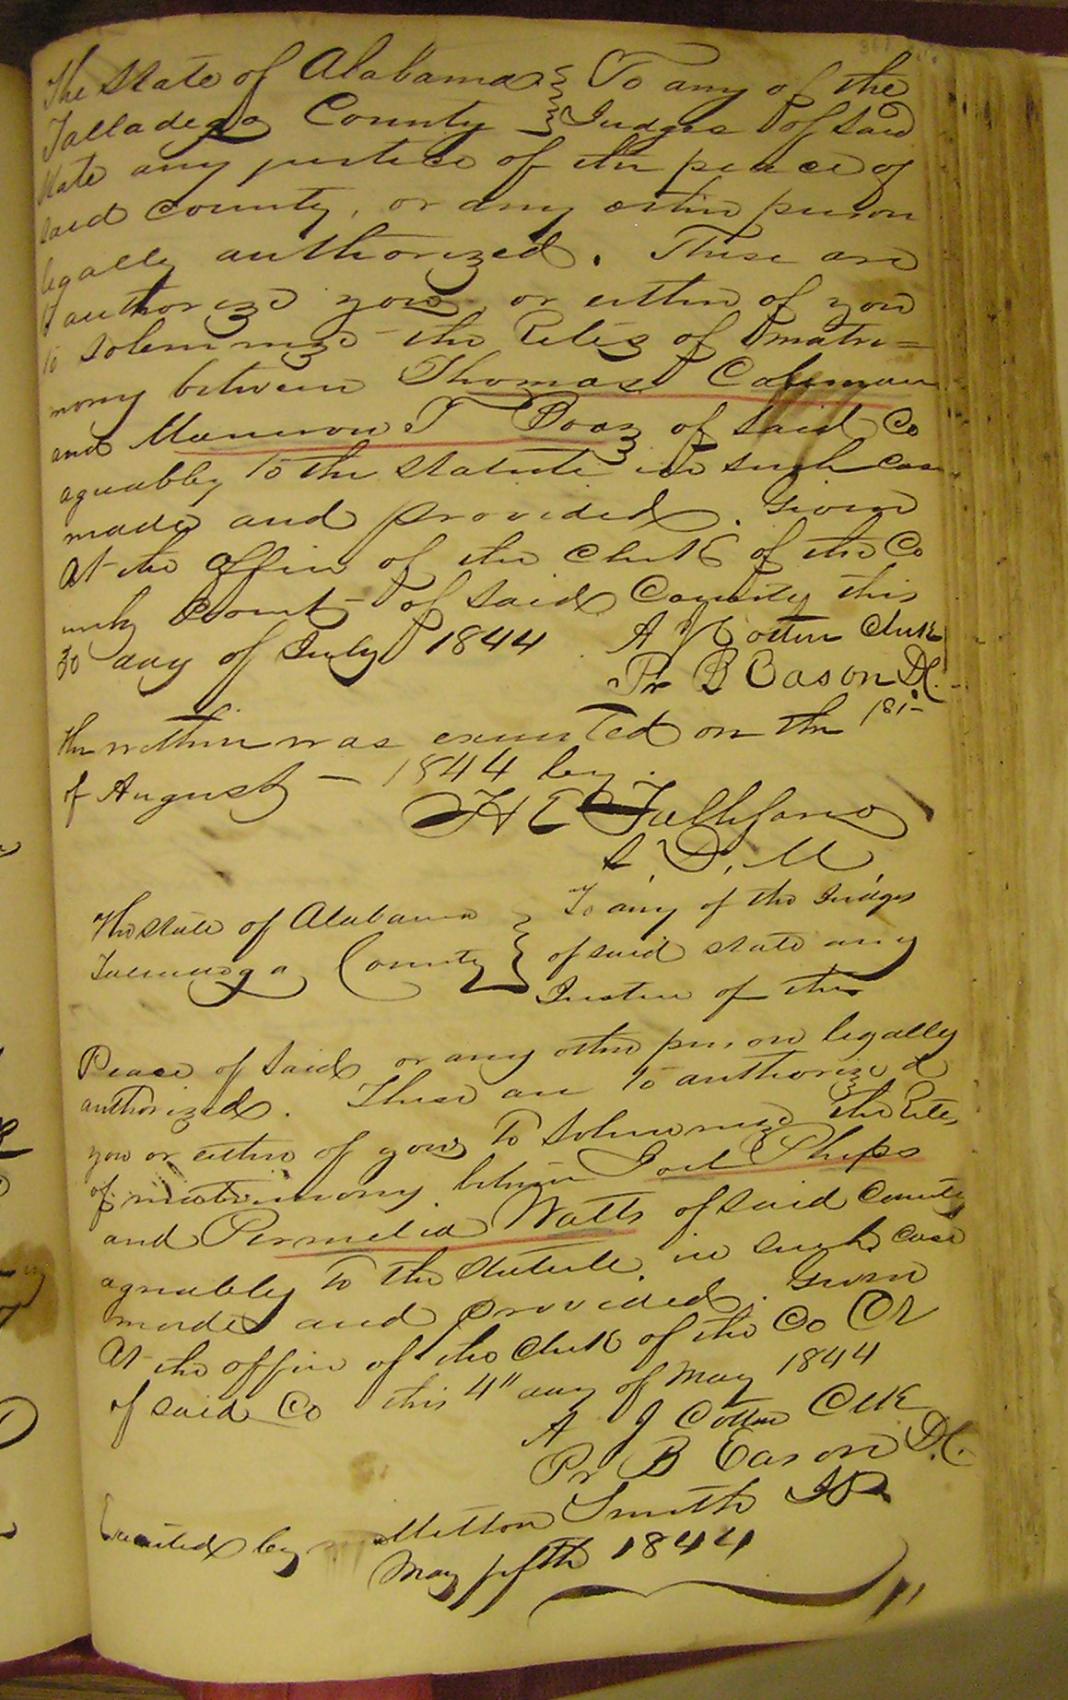 The State of Alabama } To any of the
Talladega County } Judges of Said
State any justice of the peace of
said county, or any other person
legally authorized. These are
to authorize you, or either of you
to solemnize the Rites of matri=
mony between Thomas Coleman
and T Boaz of Said Co
agreeably to the Statute in such case
made and provided. Given
At the office of the Clerk of the Co
unty Court of Said County this
30 day of July 1844 A J Cotten Clerk
Pr B Eason D.C.
The within was executed on the 1st
of August — 1844 by
H E
The State of Alabama } To any of the Judges
County } of said state any
Justice of the
Peace of Said or any other person legally
authorized. These are to authorized
you or either of you to Solemnize the Rites
of matrimony between Joel Phips
and Permelia Watts of Said County
agreeably to the Statute in such case
made and provided. Given
At the office of the Clerk of the Co Ct
of said Co this 4" day of May 1844
A J Cotten Clk
Pr B Eason D.C.
Executed by Milton Smith JP
May fifth 1844